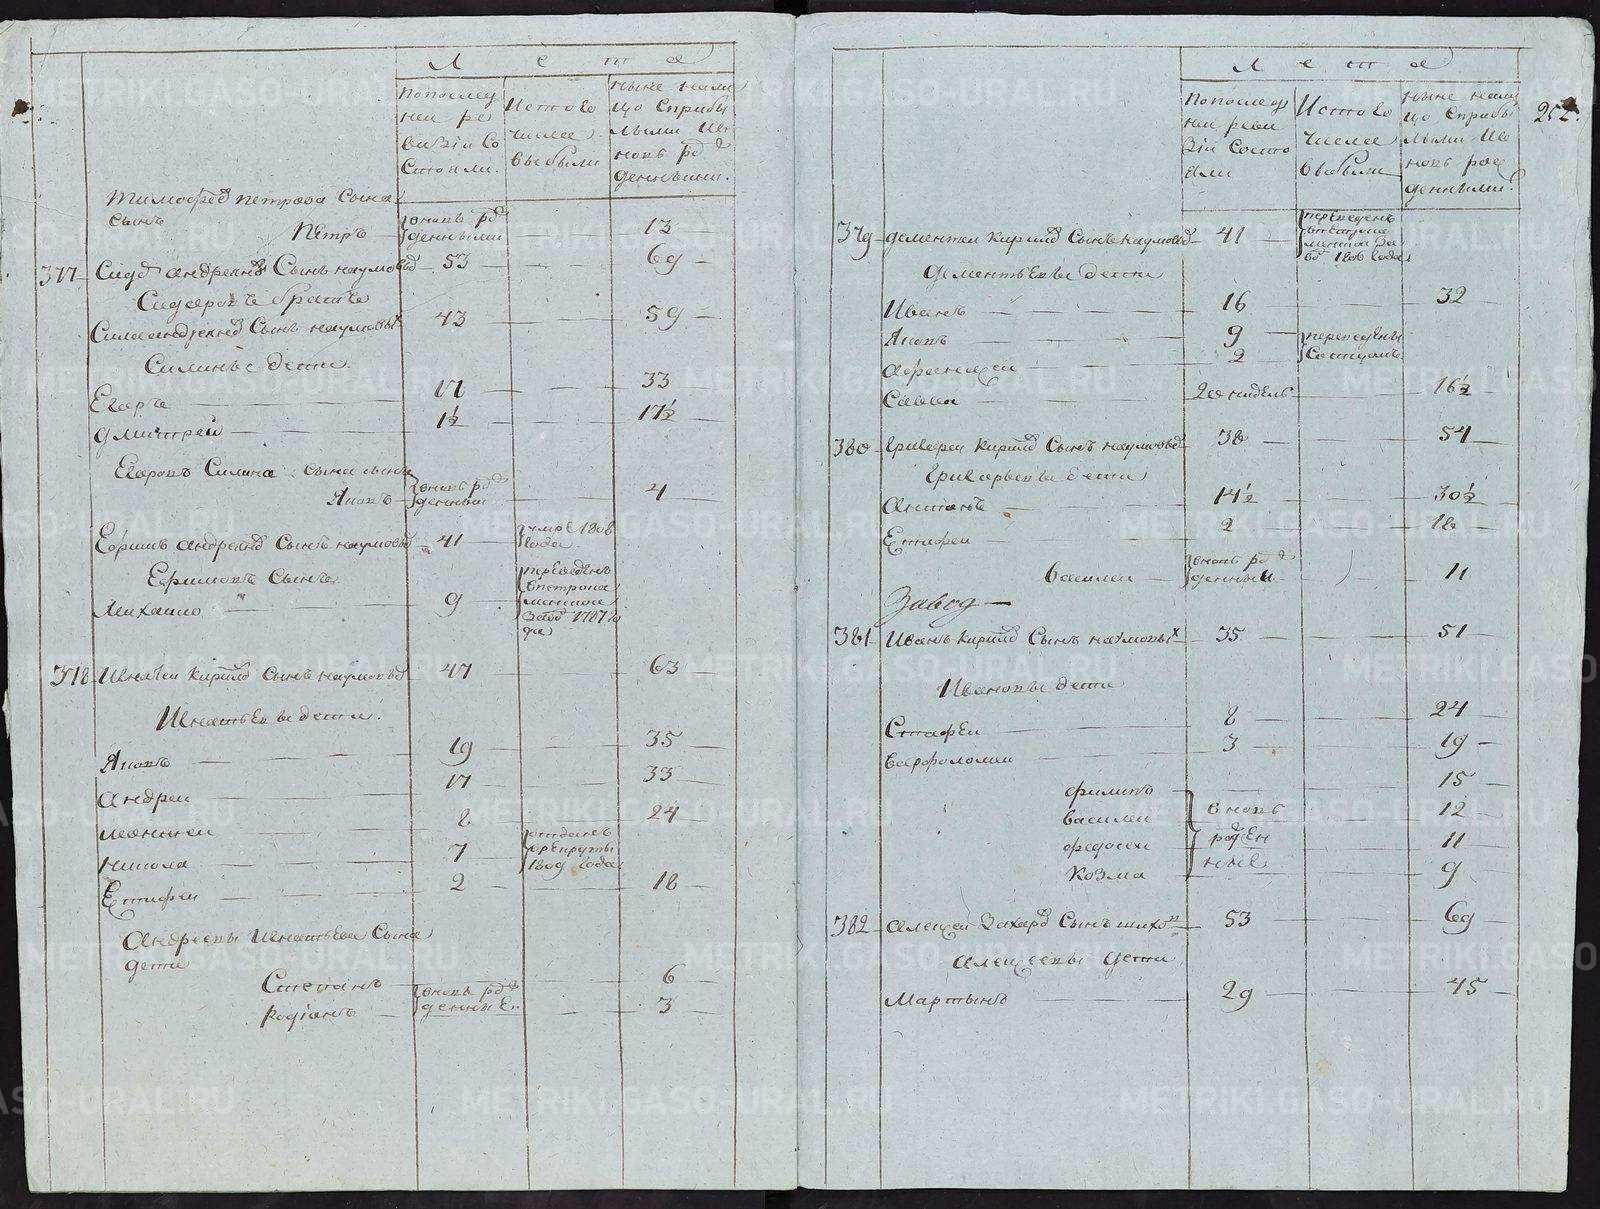 Лета
По послед
ней ре
визiи со
стояли.
Ис того
числа
выбыли
Ныне нали
цо с прибы
лыми и в
новь рож
денными.
Тимофея Петрова сына
сынъ
Петръ — вновь рож
денный — 13
377 Сидоръ Андреевъ сынъ Наумовъ — 53 — 69
Сидоровъ братъ
Сила Андреевъ сынъ Наумовых — 43 — 59
Силины дети.
Егоръ — 17 — 33
Дмитрей — 1½ — 17½
Егоровъ Силина сына сынъ
Яковъ — вновь рож
денный — 4
Ефимъ Андреевъ сынъ Наумовъ — 41 — умре 1808
года
Ефимовъ сынъ
Михайло — 9 — переведенъ
в петрока
менской
завод 1787 го
да
378 Игнатей Кирилов сынъ Наумовъ — 47 — 63
Игнатьевы дети.
Яковъ — 19 — 35
Андрей — 17 — 33
Леонтей — 8 — 24
Никола — 7 — отданъ
в рекруты
1809 года
Епифей — 2 — 18
Андреевы Игнатьева сына
дети
Степанъ — 6
Родiонъ — вновь рож
денные — 3
Лета
По послед
ней реви
зiи состо
яли
Ис того
числа
выбыли
Ныне нали
цо с прибы
лыми и в
новь рож
денными.
379 Дементей Кирилов сынъ Наумовъ — 41 — переведенъ
в петрока
менской за
вод 1806 года
Дементьевы дети
Иванъ — 16 — 32
Яковъ — 9 — переведены
со отцомъ
Афанасей — 2
Савва — 20 нидель — 16½
380 Григорей Кирилов сынъ Наумовъ — 38 — 54
Григорьевы дети
Антонъ — 14½ — 30½
Епифей — 2 — 18
Василей — вновь рож
денный — 11
Завод —
381 Иванъ Кирилов сынъ Наумовых — 35 — 51
Ивановы дети
Стафей — 8 — 24
Варфоломей — 3 — 19
Филипъ — 15
Василей — вновь — 12
Федосей — рожден — 11
Козма — ные — 9
382 Алексей Захаров сынъ Шихов — 53 — 69
Алексеевы дети
Мартынъ — 29 — 45
METRIKI.GASO-URAL.RU